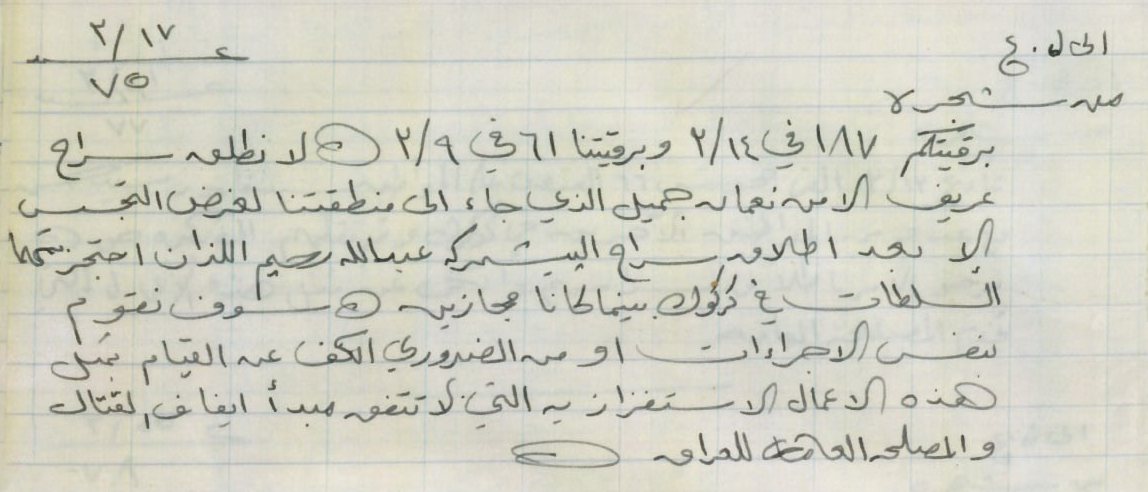 ٢/١٧
ع
٧٥
الى ل. ع
من شجرة
برقيتكم ١٨٧ في ٢/١٤ وبرقيتنا ٦١ في ٢/٩ لا نطلق سراح
عريف الامن نعمان جميل الذي جاء الى منطقتنا لغرض التجسس
إلا بعد اطلاق سراح البيشمركه عبدالله رحيم اللذان احتجزتهما
السلطات في كركوك بينما كانا مجازين سوف نقوم
بنفس الاجراءات او من الضروري الكف عن القيام بمثل
هذه الاعمال الاستفزازيه التي لا تتفق مبدأ ايقاف القتال
والمصلحه العامة للعراق